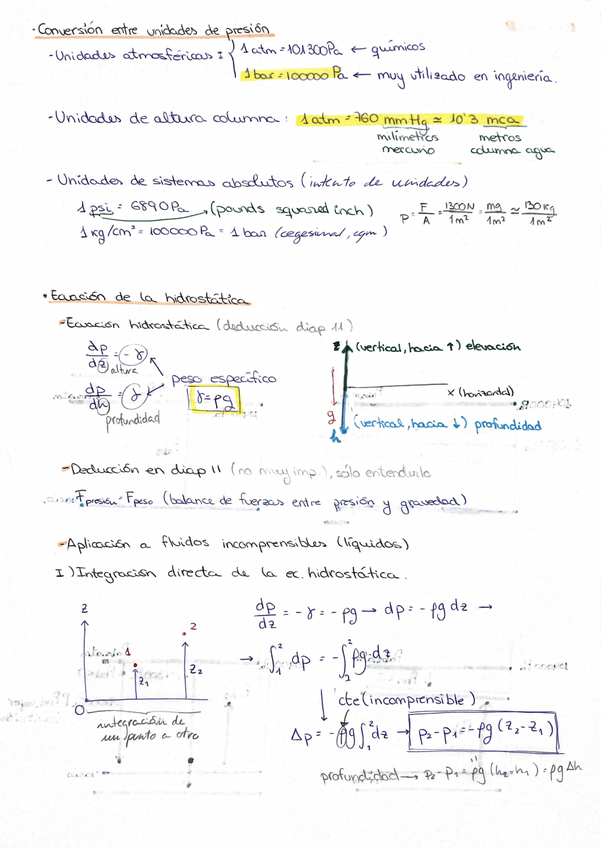 · Conversión entre unidades de presión
- Unidades atmosféricas: { 1 atm = 101300 Pa ← químicos
1 bar = 100000 Pa ← muy utilizado en ingeniería.
- Unidades de altura columna: 1 atm = 760 mmHg ≃ 10'3 mca
milímetros mercurio
metros columna agua
- Unidades de sistemas absolutos (intento de unidades)
1 psi = 6890 Pa → (pounds squared inch)
P = F/A = 1300N/1m² = mg/1m² ≃ 130kg/1m²
1 kg/cm² = 100000 Pa = 1 bar (cegesimal, cgm)
· Ecuación de la hidrostática
- Ecuación hidrostática (deducción diap 11)
dp/dz = -γ
altura
dp/dh = γ
profundidad
peso específico
γ = ρg
z (vertical, hacia ↑) elevación
x (horizontal)
g
h (vertical, hacia ↓) profundidad
- Deducción en diap 11 (no muy imp.), sólo entenderlo
Fpresión = Fpeso (balance de fuerzas entre presión y gravedad)
- Aplicación a fluidos incomprensibles (líquidos)
I) Integración directa de la ec. hidrostática.
z
1
2
z₁
z₂
O
integración de
un punto a otro
dp/dz = -γ = -ρg → dp = -ρg dz →
→ ∫₁² dp = -∫₁² ρg·dz
↓ cte (incomprensible)
Δp = -ρg ∫₁² dz → p₂-p₁ = -ρg (z₂-z₁)
profundidad → p₂-p₁ = ρg (h₂-h₁) = ρg Δh